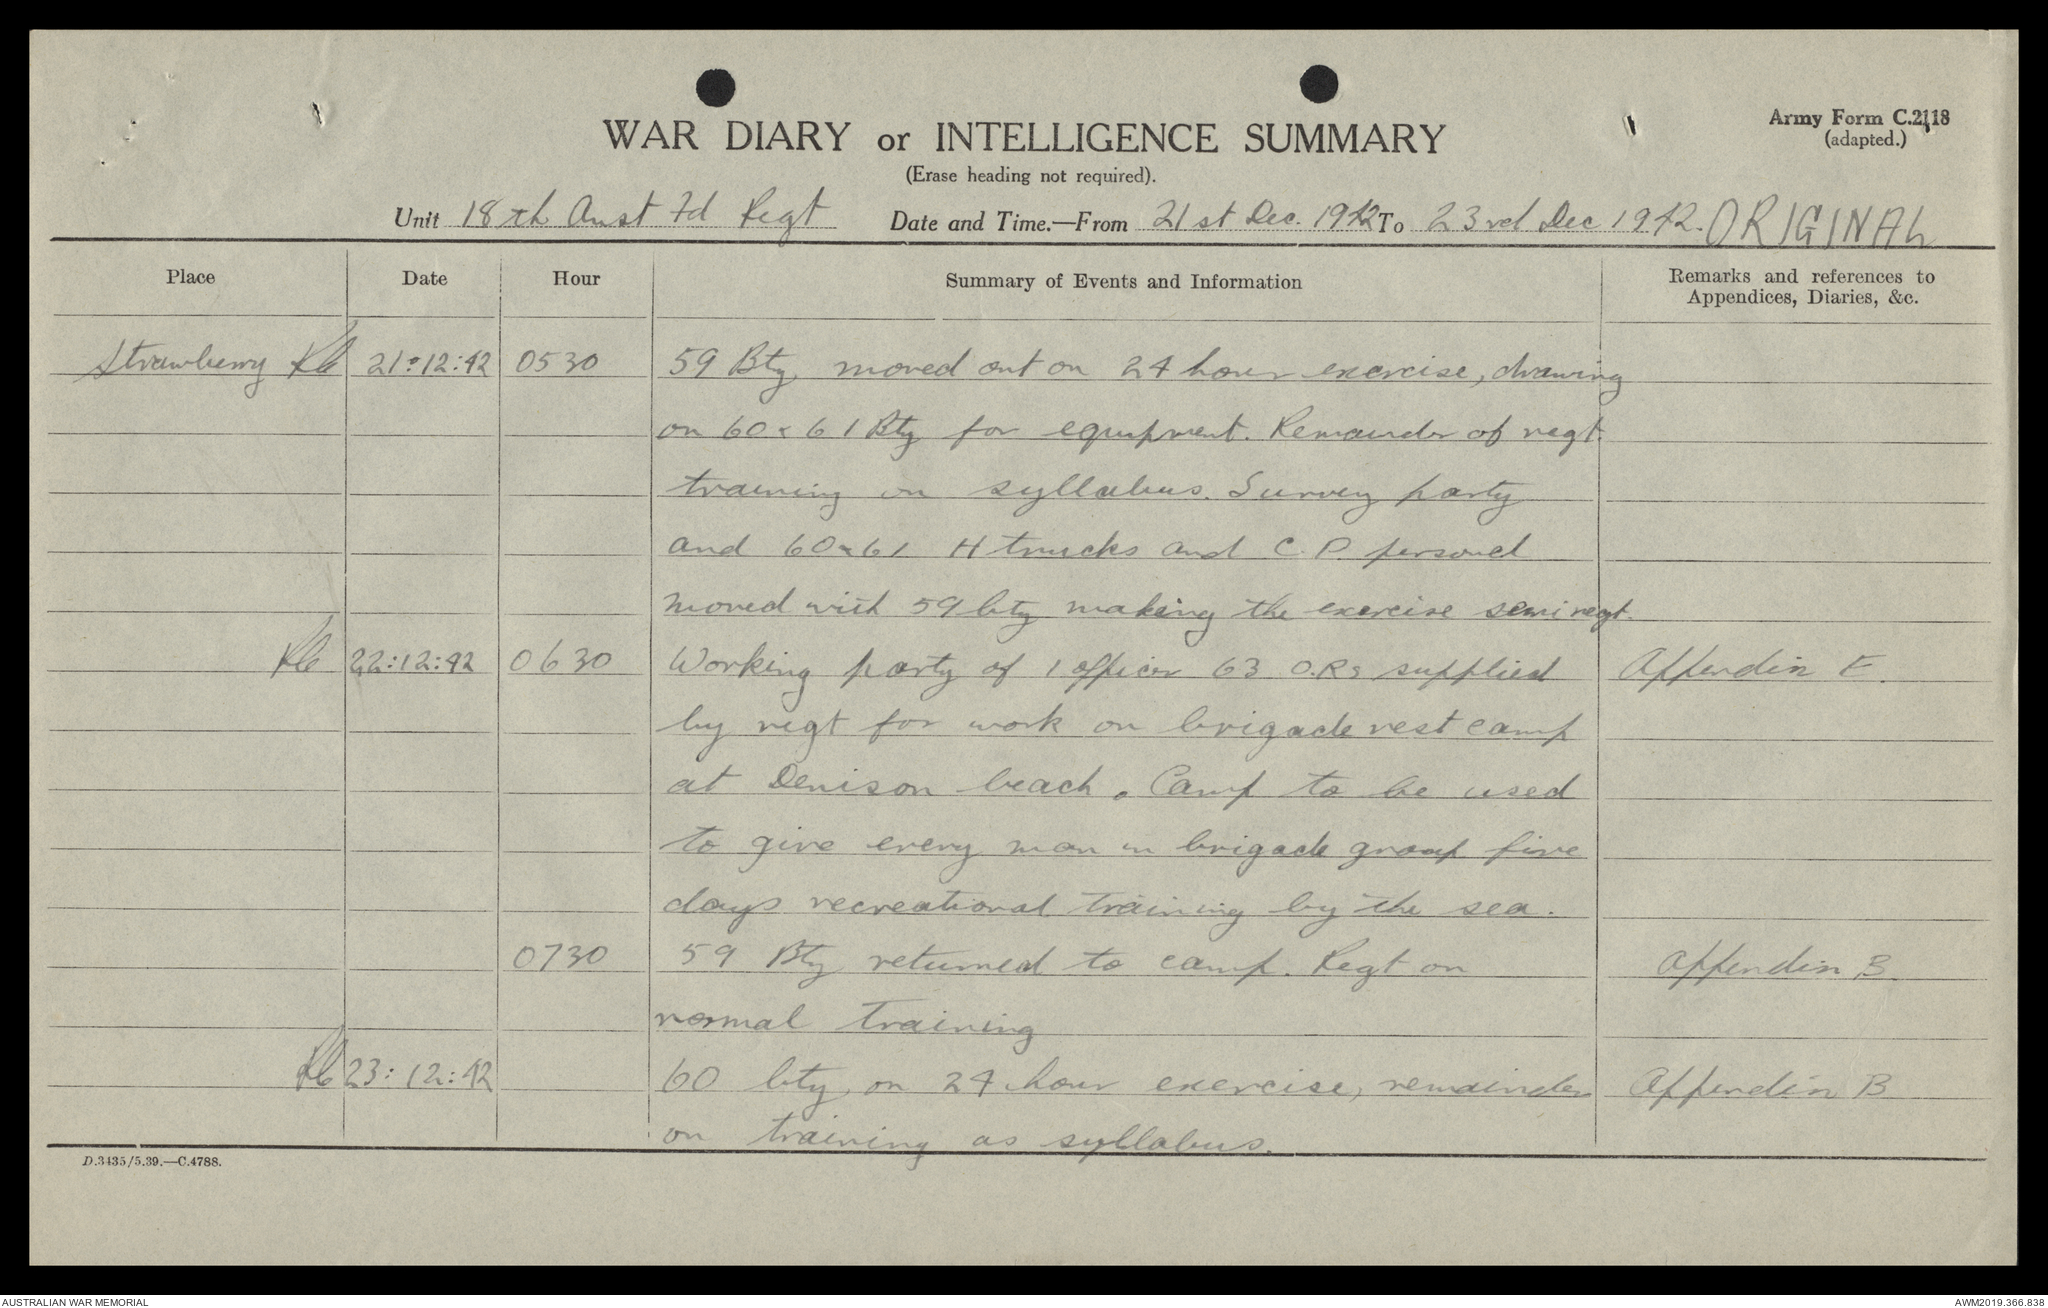 Army Form C.2118
(adapted.)
WAR DIARY or INTELLIGENCE SUMMARY
(Erase heading not required).
Unit 18th Aust Fd Regt Date and Time.—From 21st Dec. 1942 To 23rd Dec 1942. ORIGINAL
Place Date Hour Summary of Events and Information Remarks and references to
Appendices, Diaries, &c.
Strawberry 21:12:42 0530 59 Bty, moved out on 24 hour exercise, drawing
on 60 & 61 Bty for equipment. Remainder of regt.
training on syllabus. Survey party
and 60 & 61 H trucks and C.P. personel
moved with 59 bty making the exercise semi regt.
22:12:42 0630 Working party of 1 officer 63 O.Rs supplied Appendix E.
by regt for work on brigade rest camp
at Denison beach. Camp to be used
to give every man in brigade group five
days recreational training by the sea.
0730 59 Bty returned to camp. Regt on Appendix B
normal training
23:12:42 60 bty, on 24 hour exercise, remainder Appendix B
on training as syllabus.
D.3435/5.39.—C.4788.
AUSTRALIAN WAR MEMORIAL AWM2019.366.838